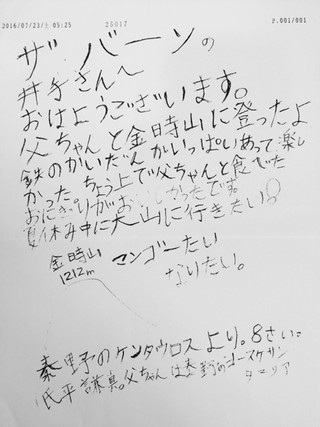 2016/07/23/土 05:25 25017 P.001/001
ザ バーンの
井手さんへ
おはようございます。
父ちゃんと金時山に登ったよ
鉄のかいだんがいっぱいあって楽し
かった。ちょう上で父ちゃんと食べた
おにぎりがおいしかったです。
夏休み中に大山に行きたい。
金時山
1212m
マンゴーたい
なりたい。
秦野のケンタウロスより。8さい。
父ちゃんは秦野の